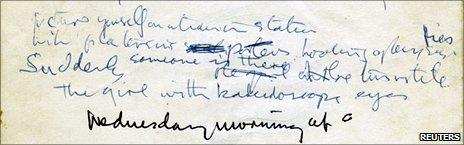 picture yourself on a train in station
with plasticine porters looking glass ties
Suddenly someone is there at the turnstile
the girl with kaleidoscope eyes
Wednesday morning at
REUTERS